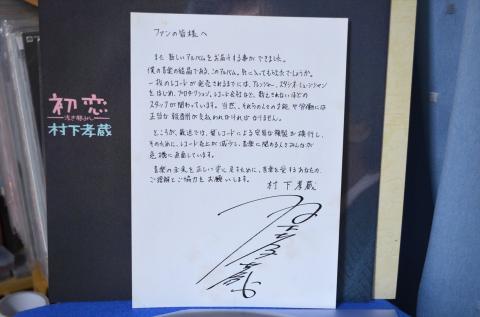 初恋
浅き夢みし
村下孝蔵
ファンの皆様へ
また新しいアルバムをお届けする事ができました。
僕の音楽の結晶である、このアルバム。気に入ってもらえたでしょうか。
一枚のレコードが発売されるまでには、アレンジャー、スタジオ・ミュージシャン
をはじめ、プロダクション、レコード会社など、数えきれないほどの
スタッフが関わっています。当然、それらの人々の才能や労働には
正当な報酬が支払われなければなりません。
ところが、最近では、貸レコードによる安易な複製が横行し、
そのために、レコード売上が減少し、音楽に関わる人々みんなが
危機に直面しています。
音楽の未来を正しい姿に戻すために、音楽を愛するあなたの、
ご理解とご協力をお願いします。
村下孝蔵